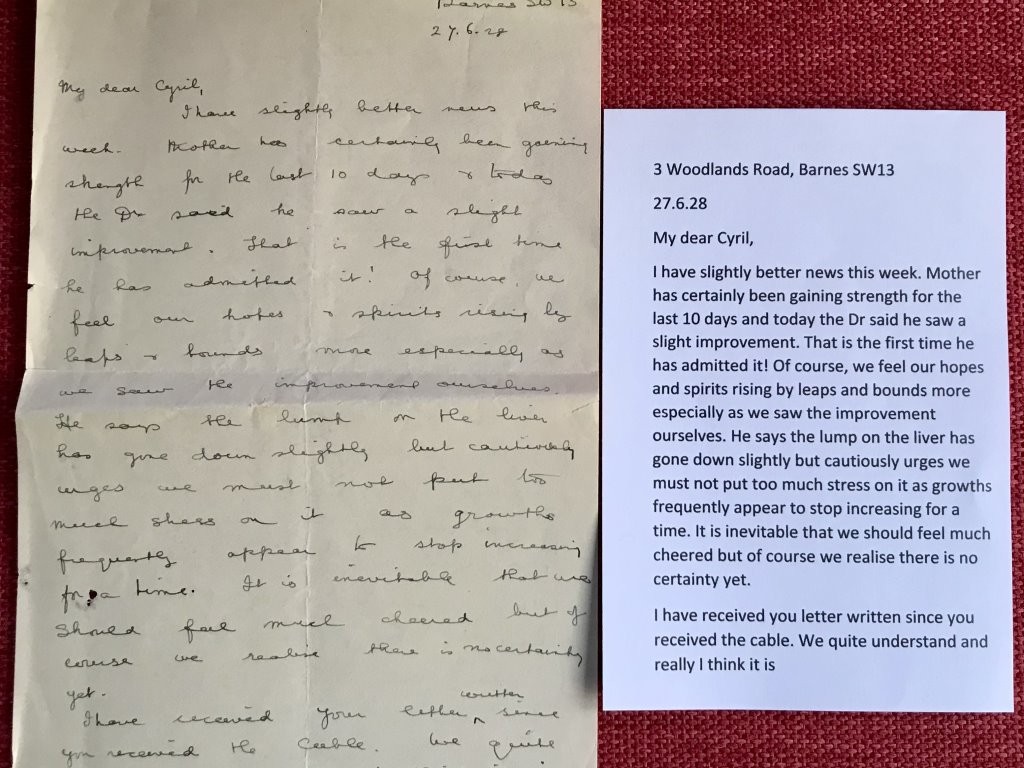 Barnes SW13
27.6.28
My dear Cyril,
I have slightly better news this
week. Mother has certainly been gaining
strength for the last 10 days & today
the Dr said he saw a slight
improvement. That is the first time
he has admitted it! Of course, we
feel our hopes & spirits rising by
leaps & bounds more especially as
we saw the improvement ourselves.
He says the lump on the liver
has gone down slightly but cautiously
urges we must not put too
much stress on it as growths
frequently appear to stop increasing
for a time. It is inevitable that we
should feel much cheered but of
course we realise there is no certainty
yet.
I have received your letter written since
you received the cable. We quite
3 Woodlands Road, Barnes SW13
27.6.28
My dear Cyril,
I have slightly better news this week. Mother
has certainly been gaining strength for the
last 10 days and today the Dr said he saw a
slight improvement. That is the first time he
has admitted it! Of course, we feel our hopes
and spirits rising by leaps and bounds more
especially as we saw the improvement
ourselves. He says the lump on the liver has
gone down slightly but cautiously urges we
must not put too much stress on it as growths
frequently appear to stop increasing for a
time. It is inevitable that we should feel much
cheered but of course we realise there is no
certainty yet.
I have received you letter written since you
received the cable. We quite understand and
really I think it is